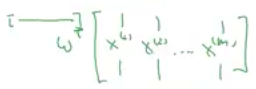 [ —— ] [ | | |
w^T x^{(1)} x^{(2)} ... x^{(m)}
| | | ]